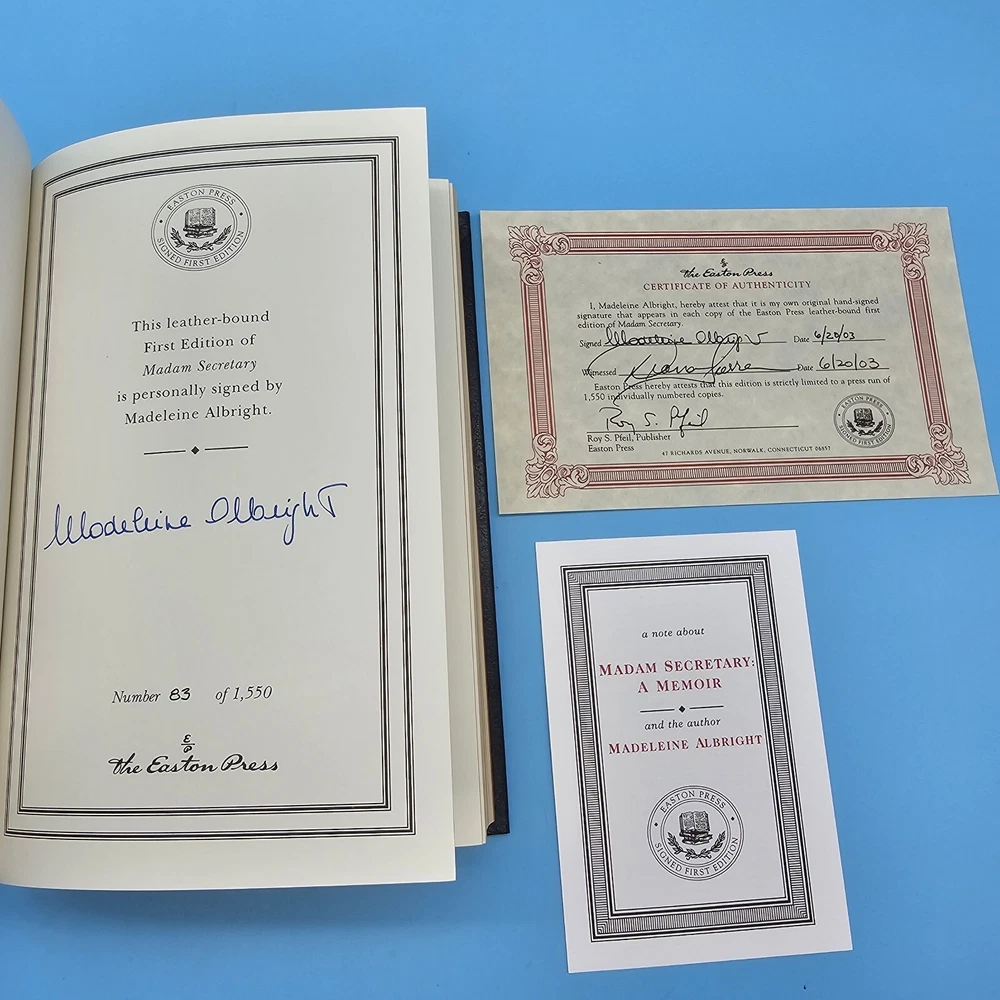 EASTON PRESS
SIGNED FIRST EDITION
This leather-bound
First Edition of
Madam Secretary
is personally signed by
Madeleine Albright.
Madeleine Albright
Number 83 of 1,550
E
P
the Easton Press
the Easton Press
CERTIFICATE OF AUTHENTICITY
I, Madeleine Albright, hereby attest that it is my own original hand-signed
signature that appears in each copy of the Easton Press leather-bound first
edition of Madam Secretary.
Signed Madeleine Albright Date 6/20/03
Witnessed Date 6/20/03
Easton Press hereby attests that this edition is strictly limited to a press run of
1,550 individually numbered copies.
Roy S. Pfeil
Roy S. Pfeil, Publisher
Easton Press
47 RICHARDS AVENUE, NORWALK, CONNECTICUT 06857
EASTON PRESS
SIGNED FIRST EDITION
a note about
MADAM SECRETARY:
A MEMOIR
and the author
MADELEINE ALBRIGHT
EASTON PRESS
SIGNED FIRST EDITION